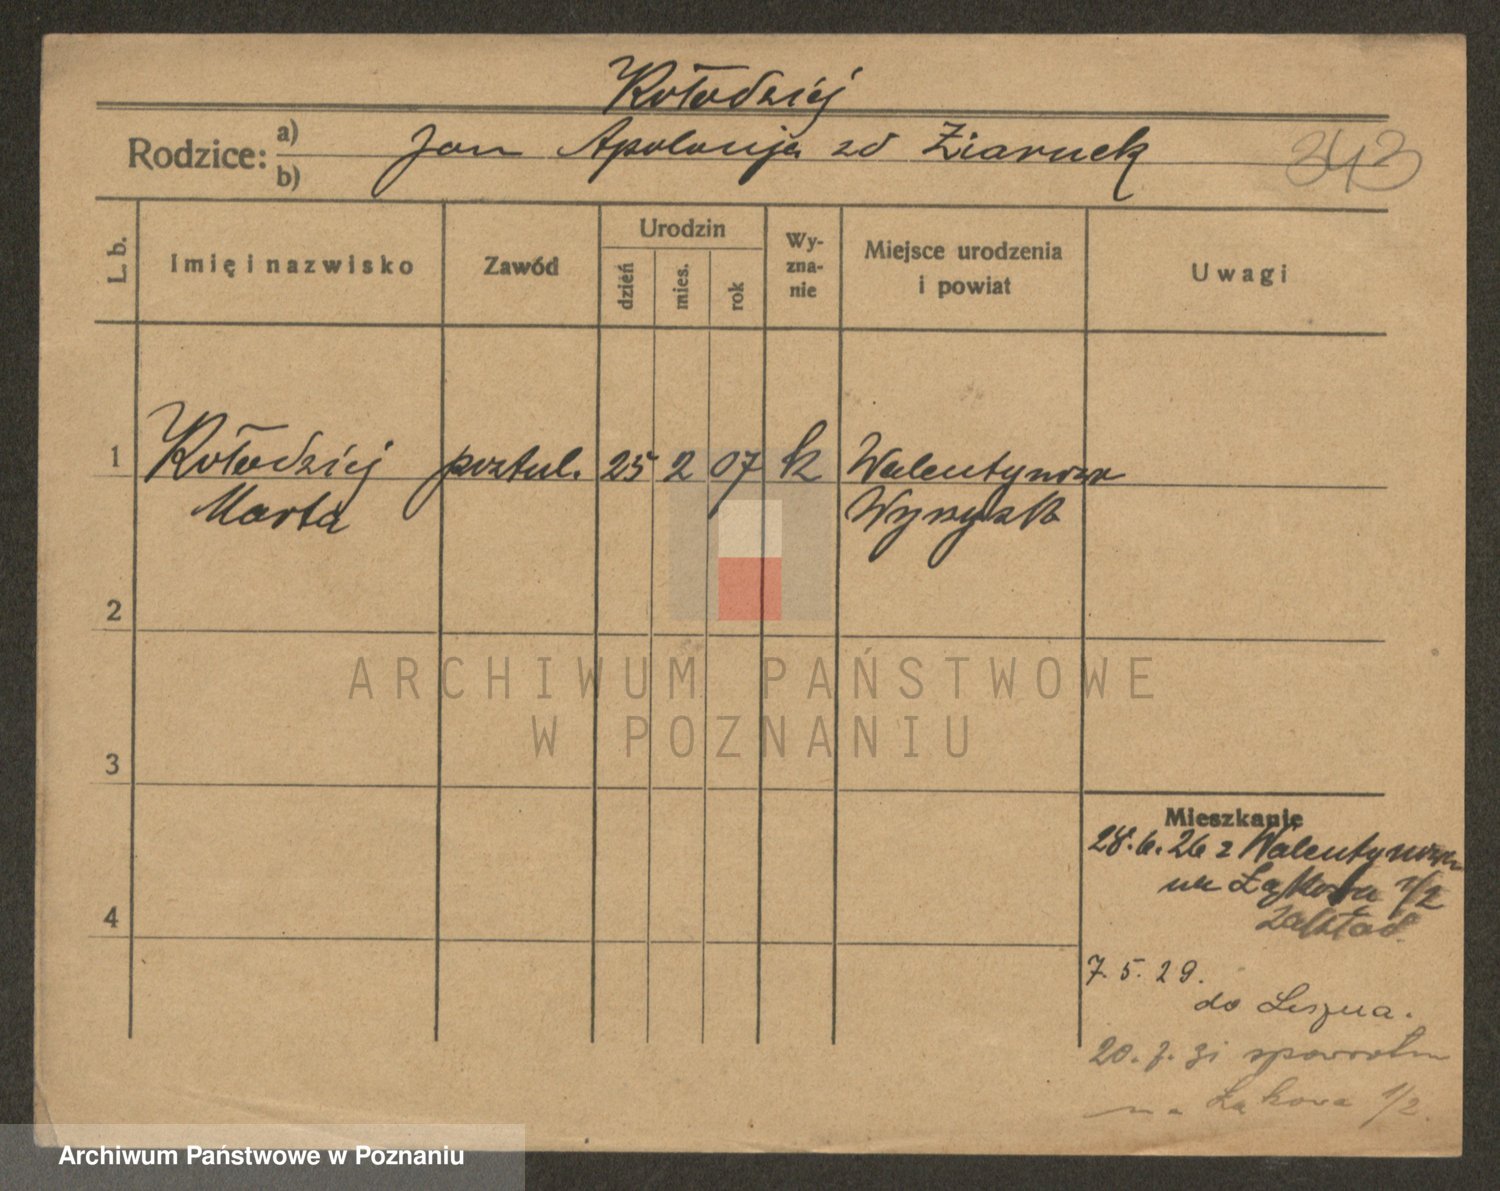 Kołodziej
Rodzice: a) b) Jan Apolonja zd Ziarnek
343
L. b.
Imię i nazwisko
Zawód
Urodzin
dzień
mies.
rok
Wy-
zna-
nie
Miejsce urodzenia
i powiat
Uwagi
1 Kołodziej postul. 25 2 07 k Walentynowo
Marta Wyrzysk
2
3
4
Mieszkanie
28.6.26 z Walentynowa
na Łąkowa 1/2
Zakład
7.5.29.
do Leszna.
20.7.31 spowrotem
na Łąkowa 1/2.
ARCHIWUM PAŃSTWOWE
W POZNANIU
Archiwum Państwowe w Poznaniu